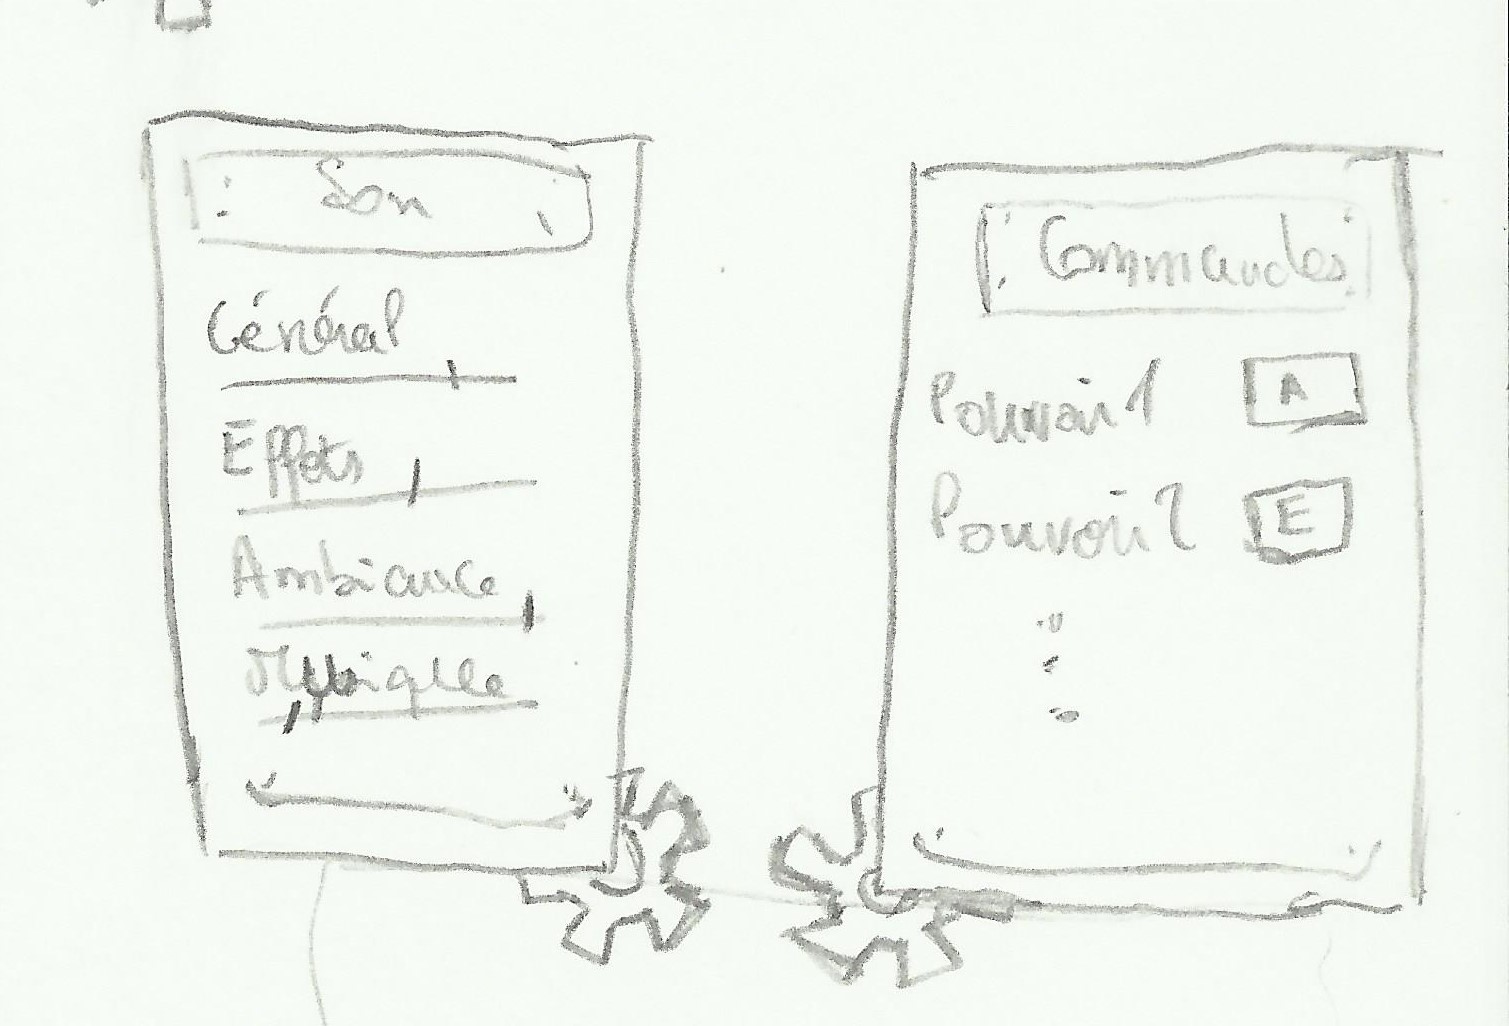 Son
Général
Effets
Ambiance
Musique
Commandes
Pouvoir 1 A
Pouvoir 2 E